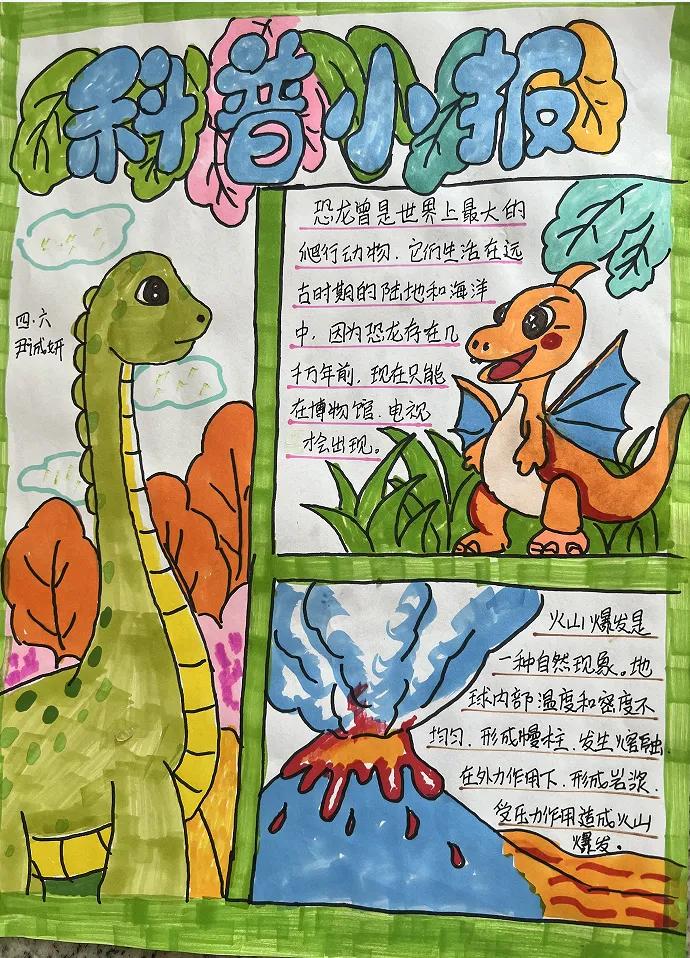 科普小报
四.六
尹诚妍
恐龙曾是世界上最大的
爬行动物.它们生活在远
古时期的陆地和海洋
中.因为恐龙存在几
千万年前.现在只能
在博物馆.电视
才会出现。
火山爆发是
一种自然现象。地
球内部温度和密度不
均匀.形成幔柱.发生熔融.
在外力作用下.形成岩浆.
受压力作用造成火山
爆发.